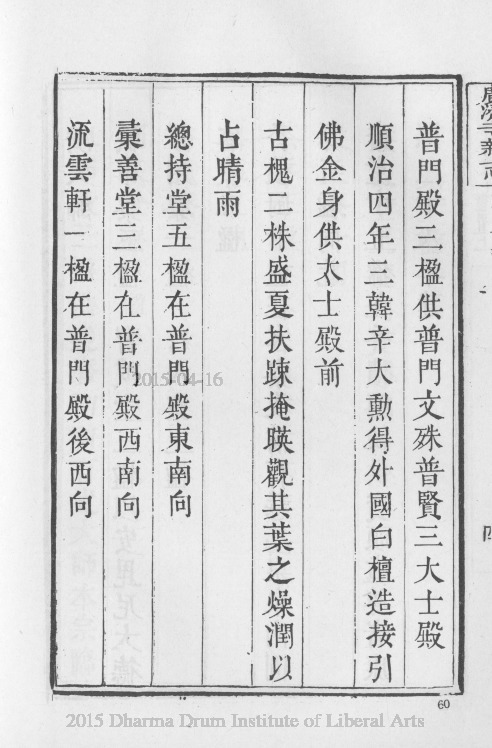 普門殿三楹供普門文殊普賢三大士殿
順治四年三韓辛大勳得外國白檀造接引
佛金身供大士殿前
古槐二株盛夏扶踈掩暎觀其葉之燥潤以
占晴雨
總持堂五楹在普門殿東南向
彚善堂三楹在普門殿西南向
流雲軒一楹在普門殿後西向
四
60
2015-04-16
2015 Dharma Drum Institute of Liberal Arts